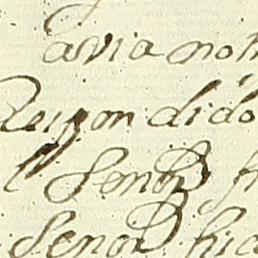 avia no
Respondido
l Senor
Senor hid